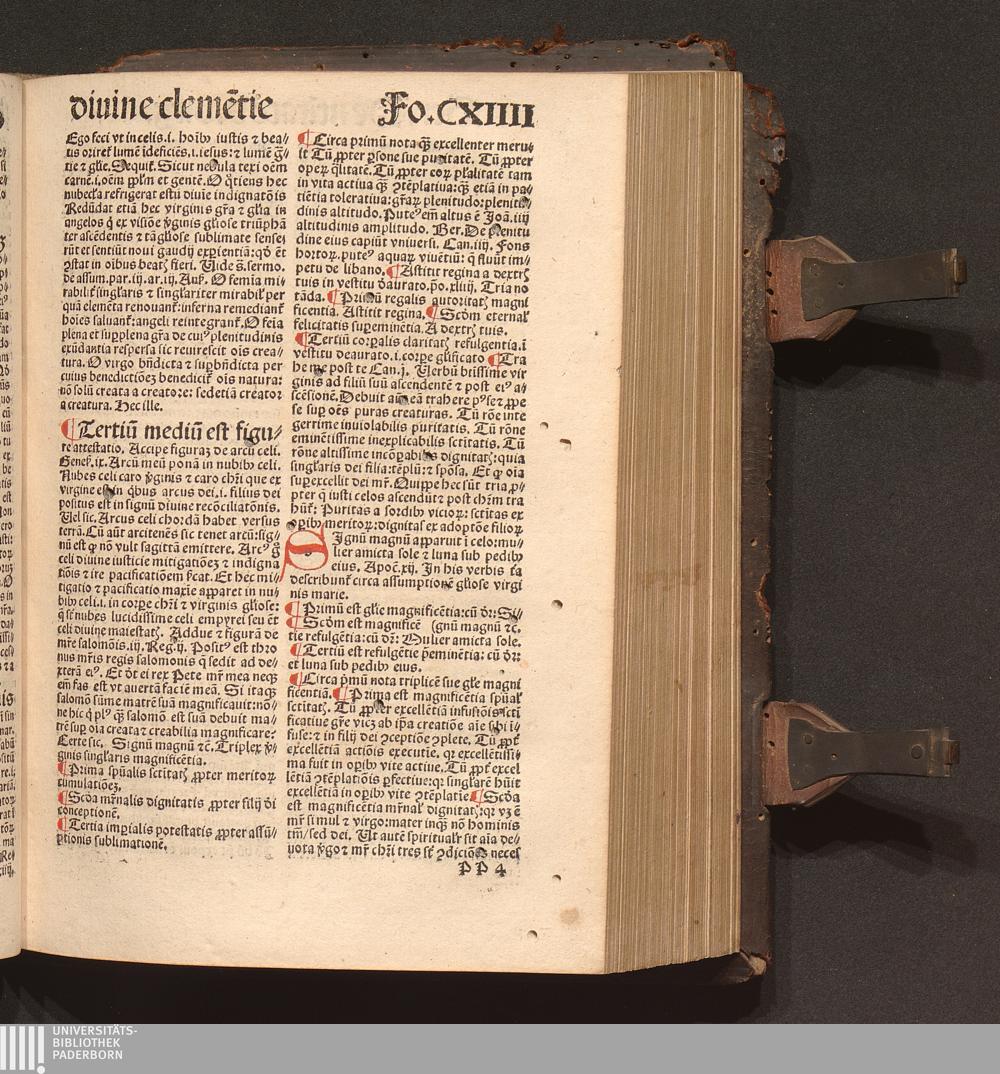 diuine clemẽtie Fo.CXIIII
Ego feci vt in celis.i. hoĩbꝰ iustis ⁊ bea⸗
tis oriret̃ lumẽ ĩdeficiẽs.i.iesus: ⁊ lumẽ g̃⸗
tie ⁊ gl̃ie. Sequit̃. Sicut nebula texi oẽm
carnẽ.i.oẽm pp̃lm et gentẽ. O q̃tiens hec
nubecl̃a refrigerat estũ diuine indignatõis
Redũdat etiã hec virginis gr̃a ⁊ gl̃ia in
angelos q̇ ex visiõe ṽginis gl̃iose triũphã
ter ascẽdentis ⁊ tã gl̃iose sublimate sense⸗
rũt et sentiũt noui gaudij exꝑientiã: qd̓ ẽt
ꝯstat in oĩbus beatꝭ fieri. Uide s̃.sermo.
de assum.par.iij.ar.iij. Aug̃. O femĩa mi⸗
rabilit̃ singl̃aris ⁊ singl̃ariter mirabil̓ per
quã elemẽta renouant̃: inferna remediant̃
hoĩes saluant̃: angeli reintegrant̃. O feĩa
plena et suꝑplena gr̃a de cuiꝰ plenitudinis
exũdantia respersa sic reuirescit oĩs crea⸗
tura. O virgo bñdicta ⁊ suꝑbñdicta per
cuius benedictiõeꝫ benedicit̃ oĩs natura:
nõ solũ creata a creatore: sed etiã creator
a creatura. Hec ille.
¶ Tertiũ mediũ est figu⸗
re attestatio. Accipe figuraꝫ de arcu celi.
Geneß.ix. Arcũ meũ ponã in nubibꝰ celi.
Nubes celi caro ṽginis ⁊ caro chr̃i que ex
virgine est in q̇bus arcus dei.i. filius dei
positus est in signũ diuine recõciliatõnis.
Uel sic. Arcus celi chordã habet versus
terrã. Cũ aũt arcitenẽs sic tenet arcũ: sig⸗
nũ est ꝙ nõ vult sagittã emittere. Arcꝰ g̊
celi diuine iusticie mitigatiõeꝫ ⁊ indigna
tiõis ⁊ ire pacificatiõem p̃cat. Et hec mi⸗
tigatio ⁊ pacificatio maxie apparet in nu⸗
bibꝰ celi.i. in corꝑe chr̃i ⁊ virginis gl̃iose:
q̃ st̃ nubes lucidissime celi empyrei seu ẽt
celi diuine maiestatꝭ. Adduc ⁊ figurã de
mr̃e salomõis.iij.Reg̃.ij. Positꝰ est thro
nus mr̃is regis salomonis q̃ sedit ad de⸗
xterã eiꝰ. Et dr̃ ei rex Pete mr̃ mea neqꝫ
em̃ fas est vt auertã faciẽ meã. Si itaqꝫ
salomõ sũme matrẽ suã magnificauit: nõ⸗
ne hic q̇ plꝰ q̃ꝫ salomõ est suã debuit ma⸗
trẽ suꝑ oĩa creata ⁊ creabilia magnificare?
Certe sic. Signũ magnũ ⁊c̃. Triplex ṽ⸗
ginis singl̃aris magnificẽtia.
¶ Prima spũalis sctitatꝭ ꝓpter meritoꝝ
cumulatiõeꝫ.
¶ Scda mr̃nalis dignitatis ꝓpter filij di
conceptionẽ.
¶ Tertia imꝑialis potestatis ꝓpter assũ⸗
ptionis sublimationẽ.
¶ Circa primũ nota q̃ꝫ excellenter meru⸗
it Tũ ꝓpter ꝑsone sue puritatẽ. Tũ ꝓpter
operꝝ q̃litatẽ. Tũ ꝓpter eoꝝ pl̃alitatẽ tam
in vita actiua q̃ꝫ ꝯtẽplatiua: q̃ꝫ etiã in pa⸗
tiẽtia toleratiua: gr̃aꝝ plenitudo: plenitu⸗
dinis altitudo. Puteꝰ em̃ altus ẽ Joã.iiij
altitudinis amplitudo. Ber. De plenitu
dine eius capiũt vniuersi. Can.iiij. Fons
hortoꝝ, puteꝰ aquaꝝ viuẽtiũ: q̃ fluũt im⸗
petu de libano. ¶ Astitit regina a dextrꝭ
tuis in vestitu deaurato. p̃s.xliiij. Tria no
tãda. ¶ Primũ regalis autoritatꝭ magni
ficentia. Astitit regina. ¶ Scdm eternal̓
felicitatis suꝑeminẽtia. A dextrꝭ tuis.
¶ Tertiũ corꝑalis claritatꝭ refulgentia.ĩ
vestitu deaurato.i.corꝑe glificato ¶ Tra
he me post te Can.j. Uerbũ btissime vir
ginis ad filiũ suũ ascendentẽ ⁊ post eiꝰ a⸗
scẽsionẽ. Debuit aũ eã trahere pꝰ se ⁊ ꝓpe
se suꝑ oẽs puras creaturas. Tũ rõe inte
gerrime inuiolabilis puritatis. Tũ rõne
eminẽtissime inexplicabilis sctitatis. Tũ
rõne altissime incõꝑabilis dignitatꝭ: quia
singl̃aris dei filia: tẽplũ: ⁊ spõsa. Et ꝙ oĩa
suꝑexcellit dei mr̃. Quippe hec sũt tria ꝓ⸗
pter q̃ iusti celos ascendũt ⁊ post chr̃m tra
hũt̃: Puritas a sordibꝰ vicioꝝ: sctitas ex
oꝑibꝰ meritoꝝ: dignitas ex adoptõe filioꝝ
SIgnũ magnũ apparuit ĩ celo: mu⸗
lier amicta sole ⁊ luna sub pedibꝰ
eius. Apoc̃.xij. In his verbis tã
describunt̃ circa assumptionẽ gl̃iose virgi
nis marie.
¶ Primũ est gl̃ie magnificẽtia: cũ dr̃: Si⸗
¶ Scdm est magnificẽ (gnũ magnũ ⁊c̃.
tie refulgẽtia: cũ dr̃: Mulier amicta sole.
¶ Tertiũ est refulgẽtie p̃eminẽtia: cũ dr̃:
et luna sub pedibꝰ eius.
¶ Circa p̃mũ nota triplicẽ sue gl̃e magni
ficentiã. ¶ Prima est magnificẽtia spũal̓
sctitatꝭ. Tũ ꝓpter excellentiã infusiõis scti
ficatiue gr̃e vicꝫ ab ip̃a creatiõe aĩe sibi ĩ
fuse: ⁊ in filij dei ꝯceptiõe ꝯplete. Tũ ꝓpt̃
excellẽtiã actiõis executie. qꝛ excellẽtissi⸗
ma fuit in oꝑibꝰ vite actiue. Tũ ꝓpt̃ excel
lẽtiã ꝯtẽplatiõis ꝑfectiue: qꝛ singl̃arẽ hũit
excellẽtiã in oꝑibꝰ vite ꝯtẽplatie ¶ Scda
est magnificẽtia mr̃nal̓ dignitatꝭ: qꝛ vꝫ ẽ
mr̃ simul ⁊ virgo: mater inqꝫ nõ hominis
tm̃/ sed dei. Ut autẽ spiritualr̃ sit aĩa de⸗
uota ṽgo ⁊ mr̃ chr̃i tres st̃ ꝯdiciões neces
PP 4
UNIVERSITÄTS-
BIBLIOTHEK
PADERBORN